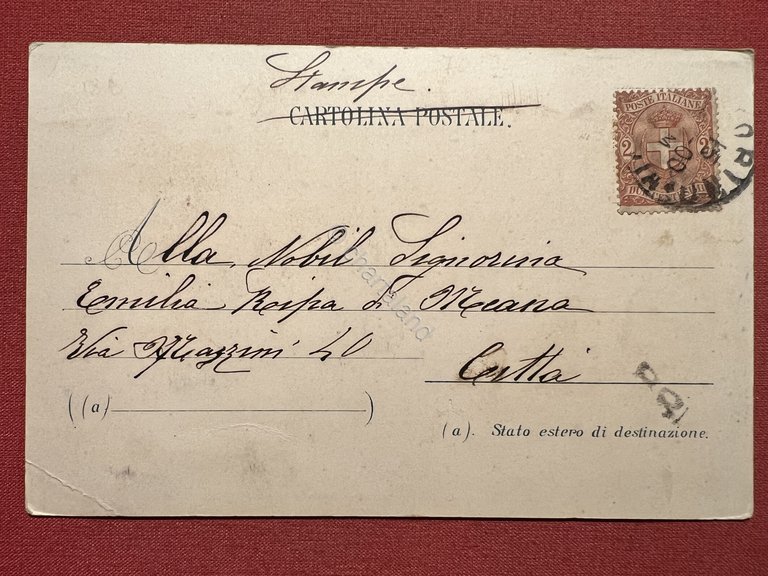 Stampe.
CARTOLINA POSTALE.
POSTE ITALIANE
2 2
Alla Nobil Signorina
Emilia Ripa di Meana
Via Mazzini 40
Città
(a)
(a). Stato estero di destinazione.